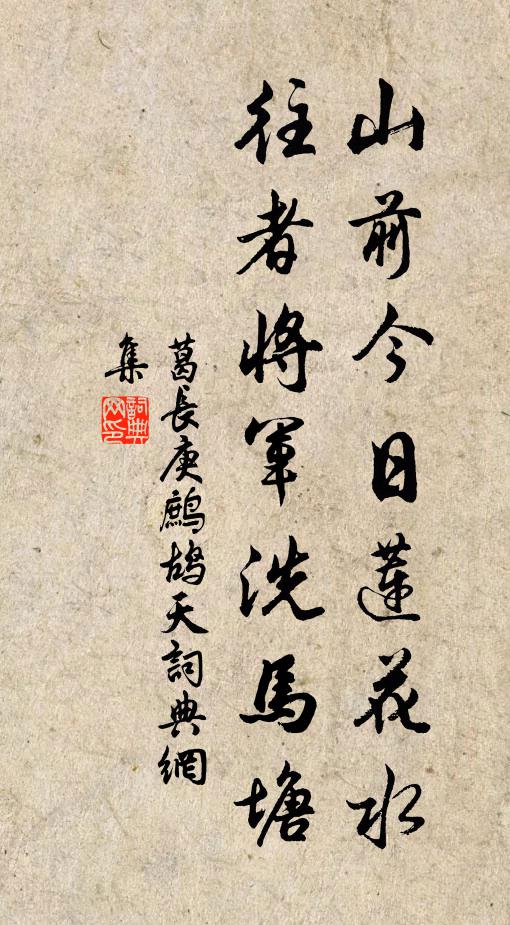 山前今日蓮花水
往者將軍洗馬塘
葛長庚鷓鴣天詞典網
集
詞典
网印